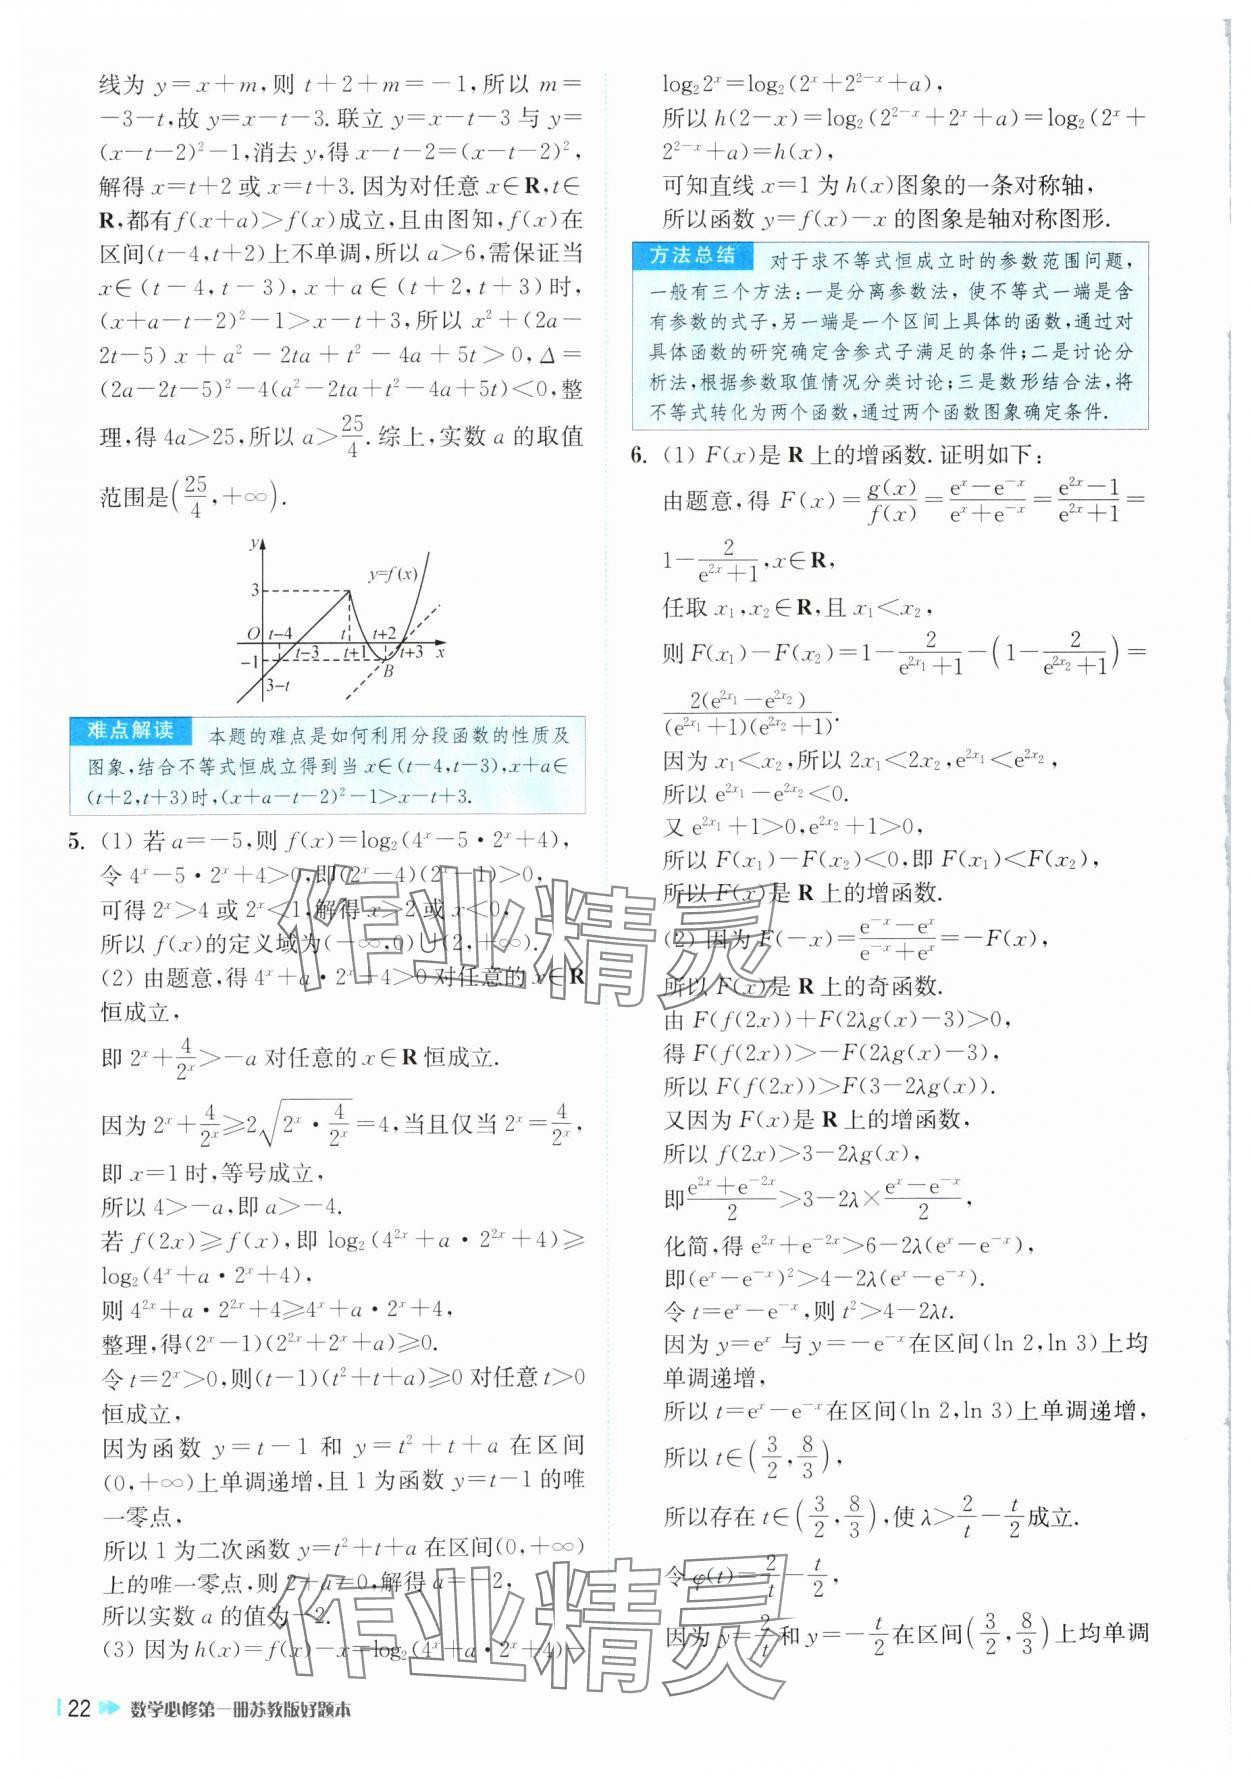 线为 y=x+m,则 t+2+m=-1,所以 m=
-3-t,故 y=x-t-3.联立 y=x-t-3 与 y=
(x-t-2)²-1,消去 y,得 x-t-2=(x-t-2)²,
解得 x=t+2 或 x=t+3.因为对任意 x∈R,t∈
R,都有 f(x+a)>f(x)成立,且由图知,f(x)在
区间(t-4,t+2)上不单调,所以 a>6,需保证当
x∈(t-4,t-3),x+a∈(t+2,t+3)时,
(x+a-t-2)²-1>x-t+3,所以 x²+(2a-
2t-5)x+a²-2ta+t²-4a+5t>0,Δ=
(2a-2t-5)²-4(a²-2ta+t²-4a+5t)<0,整
理,得 4a>25,所以 a>25/4.综上,实数 a 的取值
范围是(25/4,+∞).
y
3
y=f(x)
O t-4 t t+2
t-3 t+1 t+3 x
-1 B
3-t
难点解读 本题的难点是如何利用分段函数的性质及
图象,结合不等式恒成立得到当 x∈(t-4,t-3),x+a∈
(t+2,t+3)时,(x+a-t-2)²-1>x-t+3.
5. (1) 若 a=-5,则 f(x)=log₂(4ˣ-5·2ˣ+4),
令 4ˣ-5·2ˣ+4>0,即(2ˣ-4)(2ˣ-1)>0,
可得 2ˣ>4 或 2ˣ<1,解得 x>2 或 x<0,
所以 f(x)的定义域为(-∞,0)∪(2,+∞).
(2) 由题意,得 4ˣ+a·2ˣ+4>0 对任意的 x∈R
恒成立,
即 2ˣ+4/2ˣ>-a 对任意的 x∈R 恒成立.
因为 2ˣ+4/2ˣ≥2√(2ˣ·4/2ˣ)=4,当且仅当 2ˣ=4/2ˣ,
即 x=1 时,等号成立,
所以 4>-a,即 a>-4.
若 f(2x)≥f(x),即 log₂(4²ˣ+a·2²ˣ+4)≥
log₂(4ˣ+a·2ˣ+4),
则 4²ˣ+a·2²ˣ+4≥4ˣ+a·2ˣ+4,
整理,得(2ˣ-1)(2²ˣ+2ˣ+a)≥0.
令 t=2ˣ>0,则(t-1)(t²+t+a)≥0 对任意 t>0
恒成立,
因为函数 y=t-1 和 y=t²+t+a 在区间
(0,+∞)上单调递增,且 1 为函数 y=t-1 的唯
一零点,
所以 1 为二次函数 y=t²+t+a 在区间(0,+∞)
上的唯一零点,则 2+a=0,解得 a=-2,
所以实数 a 的值为-2.
(3) 因为 h(x)=f(x)-x=log₂(4ˣ+a·2ˣ+4)-
log₂2ˣ=log₂(2ˣ+2²⁻ˣ+a),
所以 h(2-x)=log₂(2²⁻ˣ+2ˣ+a)=log₂(2ˣ+
2²⁻ˣ+a)=h(x),
可知直线 x=1 为 h(x)图象的一条对称轴,
所以函数 y=f(x)-x 的图象是轴对称图形.
方法总结 对于求不等式恒成立时的参数范围问题,
一般有三个方法:一是分离参数法,使不等式一端是含
有参数的式子,另一端是一个区间上具体的函数,通过对
具体函数的研究确定含参式子满足的条件;二是讨论分
析法,根据参数取值情况分类讨论;三是数形结合法,将
不等式转化为两个函数,通过两个函数图象确定条件.
6. (1) F(x)是 R 上的增函数.证明如下:
由题意,得 F(x)=g(x)/f(x)=(eˣ-e⁻ˣ)/(eˣ+e⁻ˣ)=(e²ˣ-1)/(e²ˣ+1)=
1-2/(e²ˣ+1),x∈R,
任取 x₁,x₂∈R,且 x₁<x₂,
则 F(x₁)-F(x₂)=1-2/(e^{2x₁}+1)-(1-2/(e^{2x₂}+1))=
2(e^{2x₁}-e^{2x₂})/((e^{2x₁}+1)(e^{2x₂}+1)).
因为 x₁<x₂,所以 2x₁<2x₂,e^{2x₁}<e^{2x₂},
所以 e^{2x₁}-e^{2x₂}<0.
又 e^{2x₁}+1>0,e^{2x₂}+1>0,
所以 F(x₁)-F(x₂)<0,即 F(x₁)<F(x₂),
所以 F(x)是 R 上的增函数.
(2) 因为 F(-x)=(e⁻ˣ-eˣ)/(e⁻ˣ+eˣ)=-F(x),
所以 F(x)是 R 上的奇函数.
由 F(f(2x))+F(2λg(x)-3)>0,
得 F(f(2x))>-F(2λg(x)-3),
所以 F(f(2x))>F(3-2λg(x)).
又因为 F(x)是 R 上的增函数,
所以 f(2x)>3-2λg(x),
即(e²ˣ+e⁻²ˣ)/2>3-2λ×(eˣ-e⁻ˣ)/2,
化简,得 e²ˣ+e⁻²ˣ>6-2λ(eˣ-e⁻ˣ),
即(eˣ-e⁻ˣ)²>4-2λ(eˣ-e⁻ˣ).
令 t=eˣ-e⁻ˣ,则 t²>4-2λt.
因为 y=eˣ 与 y=-e⁻ˣ在区间(ln 2,ln 3)上均
单调递增,
所以 t=eˣ-e⁻ˣ在区间(ln 2,ln 3)上单调递增,
所以 t∈(3/2,8/3),
所以存在 t∈(3/2,8/3),使 λ>2/t-t/2成立.
令 φ(t)=2/t-t/2,
因为 y=2/t和 y=-t/2在区间(3/2,8/3)上均单调
作业精灵
作业精灵
22 数学必修第一册苏教版好题本